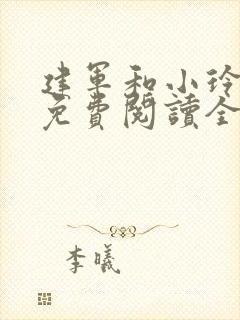 建軍和小玲
免費閱讀全
李曦